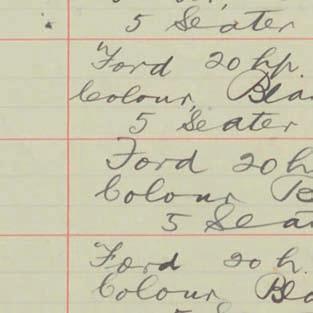 5 Seater
Ford 20 hp.
Colour, Bla
5 Seater
Ford 20 h
Colour B
5 Sea
Ford 20 h.
Colour Bla